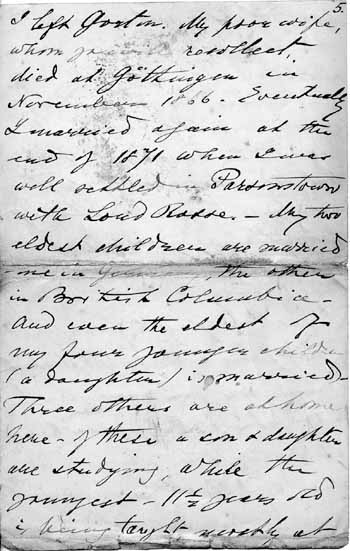 5.
I left Gorton. My poor wife,
whom you will recollect,
died at Göttingen in
November 1866. Eventually
I married again at the
end of 1871 when I was
well settled in Parsonstown
with Lord Rosse. – My two
eldest children are married
one in Germany, the other
in British Columbia –
And even the eldest of
my four younger children
(a daughter) is married –
Three others are at home
here – of these a son & daughter
are studying, while the
youngest – 11½ years old
is being taught mostly at